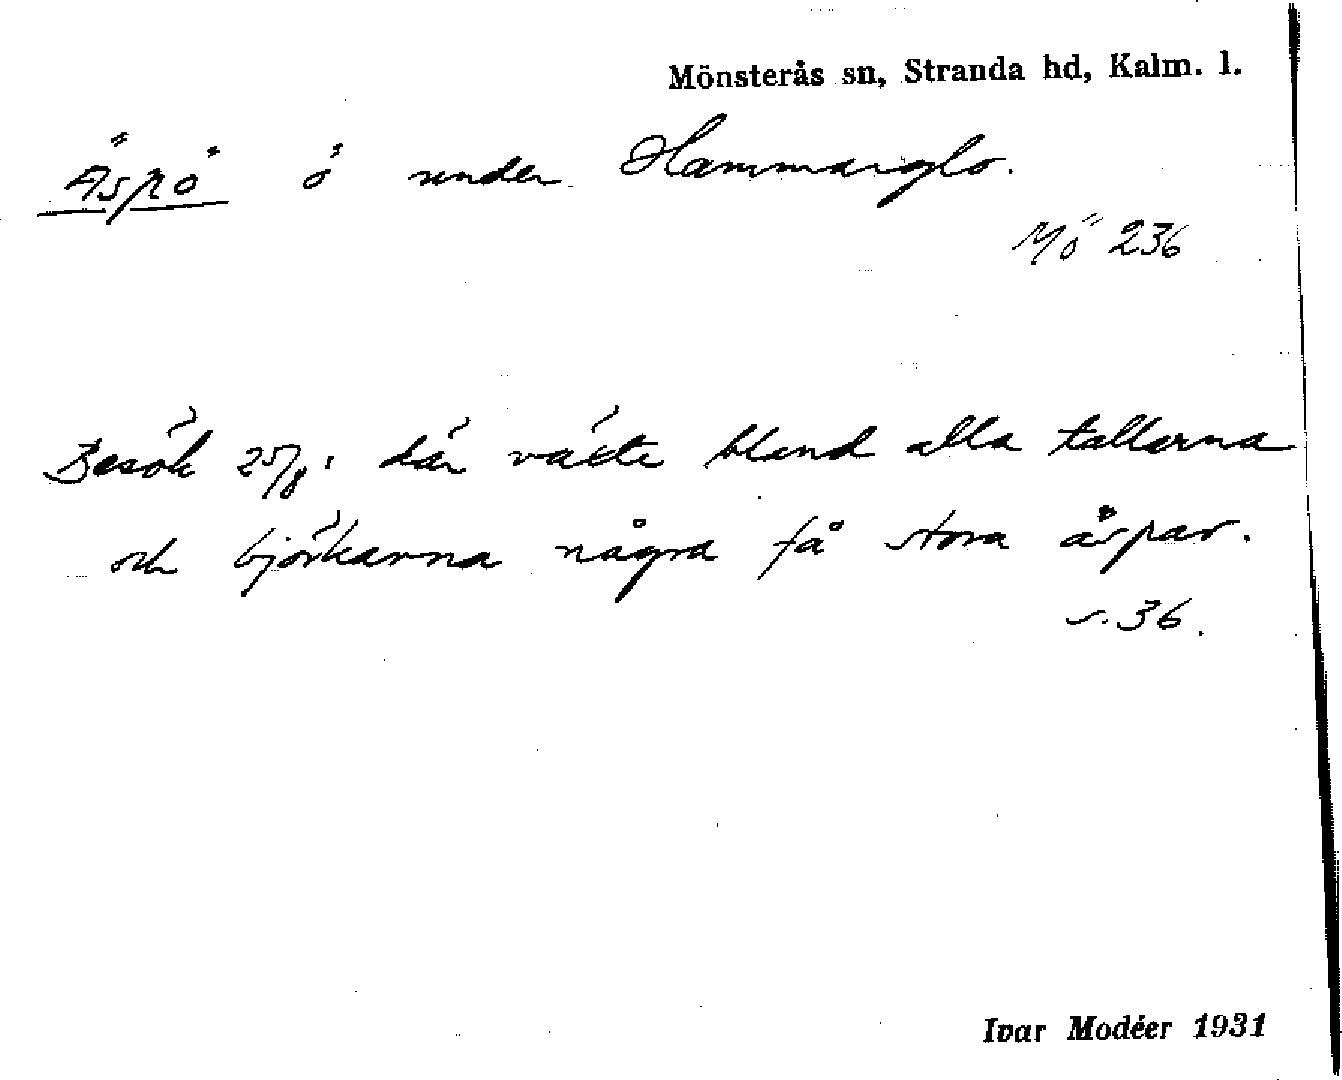 Mönsterås sn, Stranda hd, Kalm. l.
Äspö ö under Hammarglo.
Mö 236
Besök 25/8: där växte bland alla tallarna
och björkarna några få stora äspar.
s. 36.
Ivar Modéer 1931